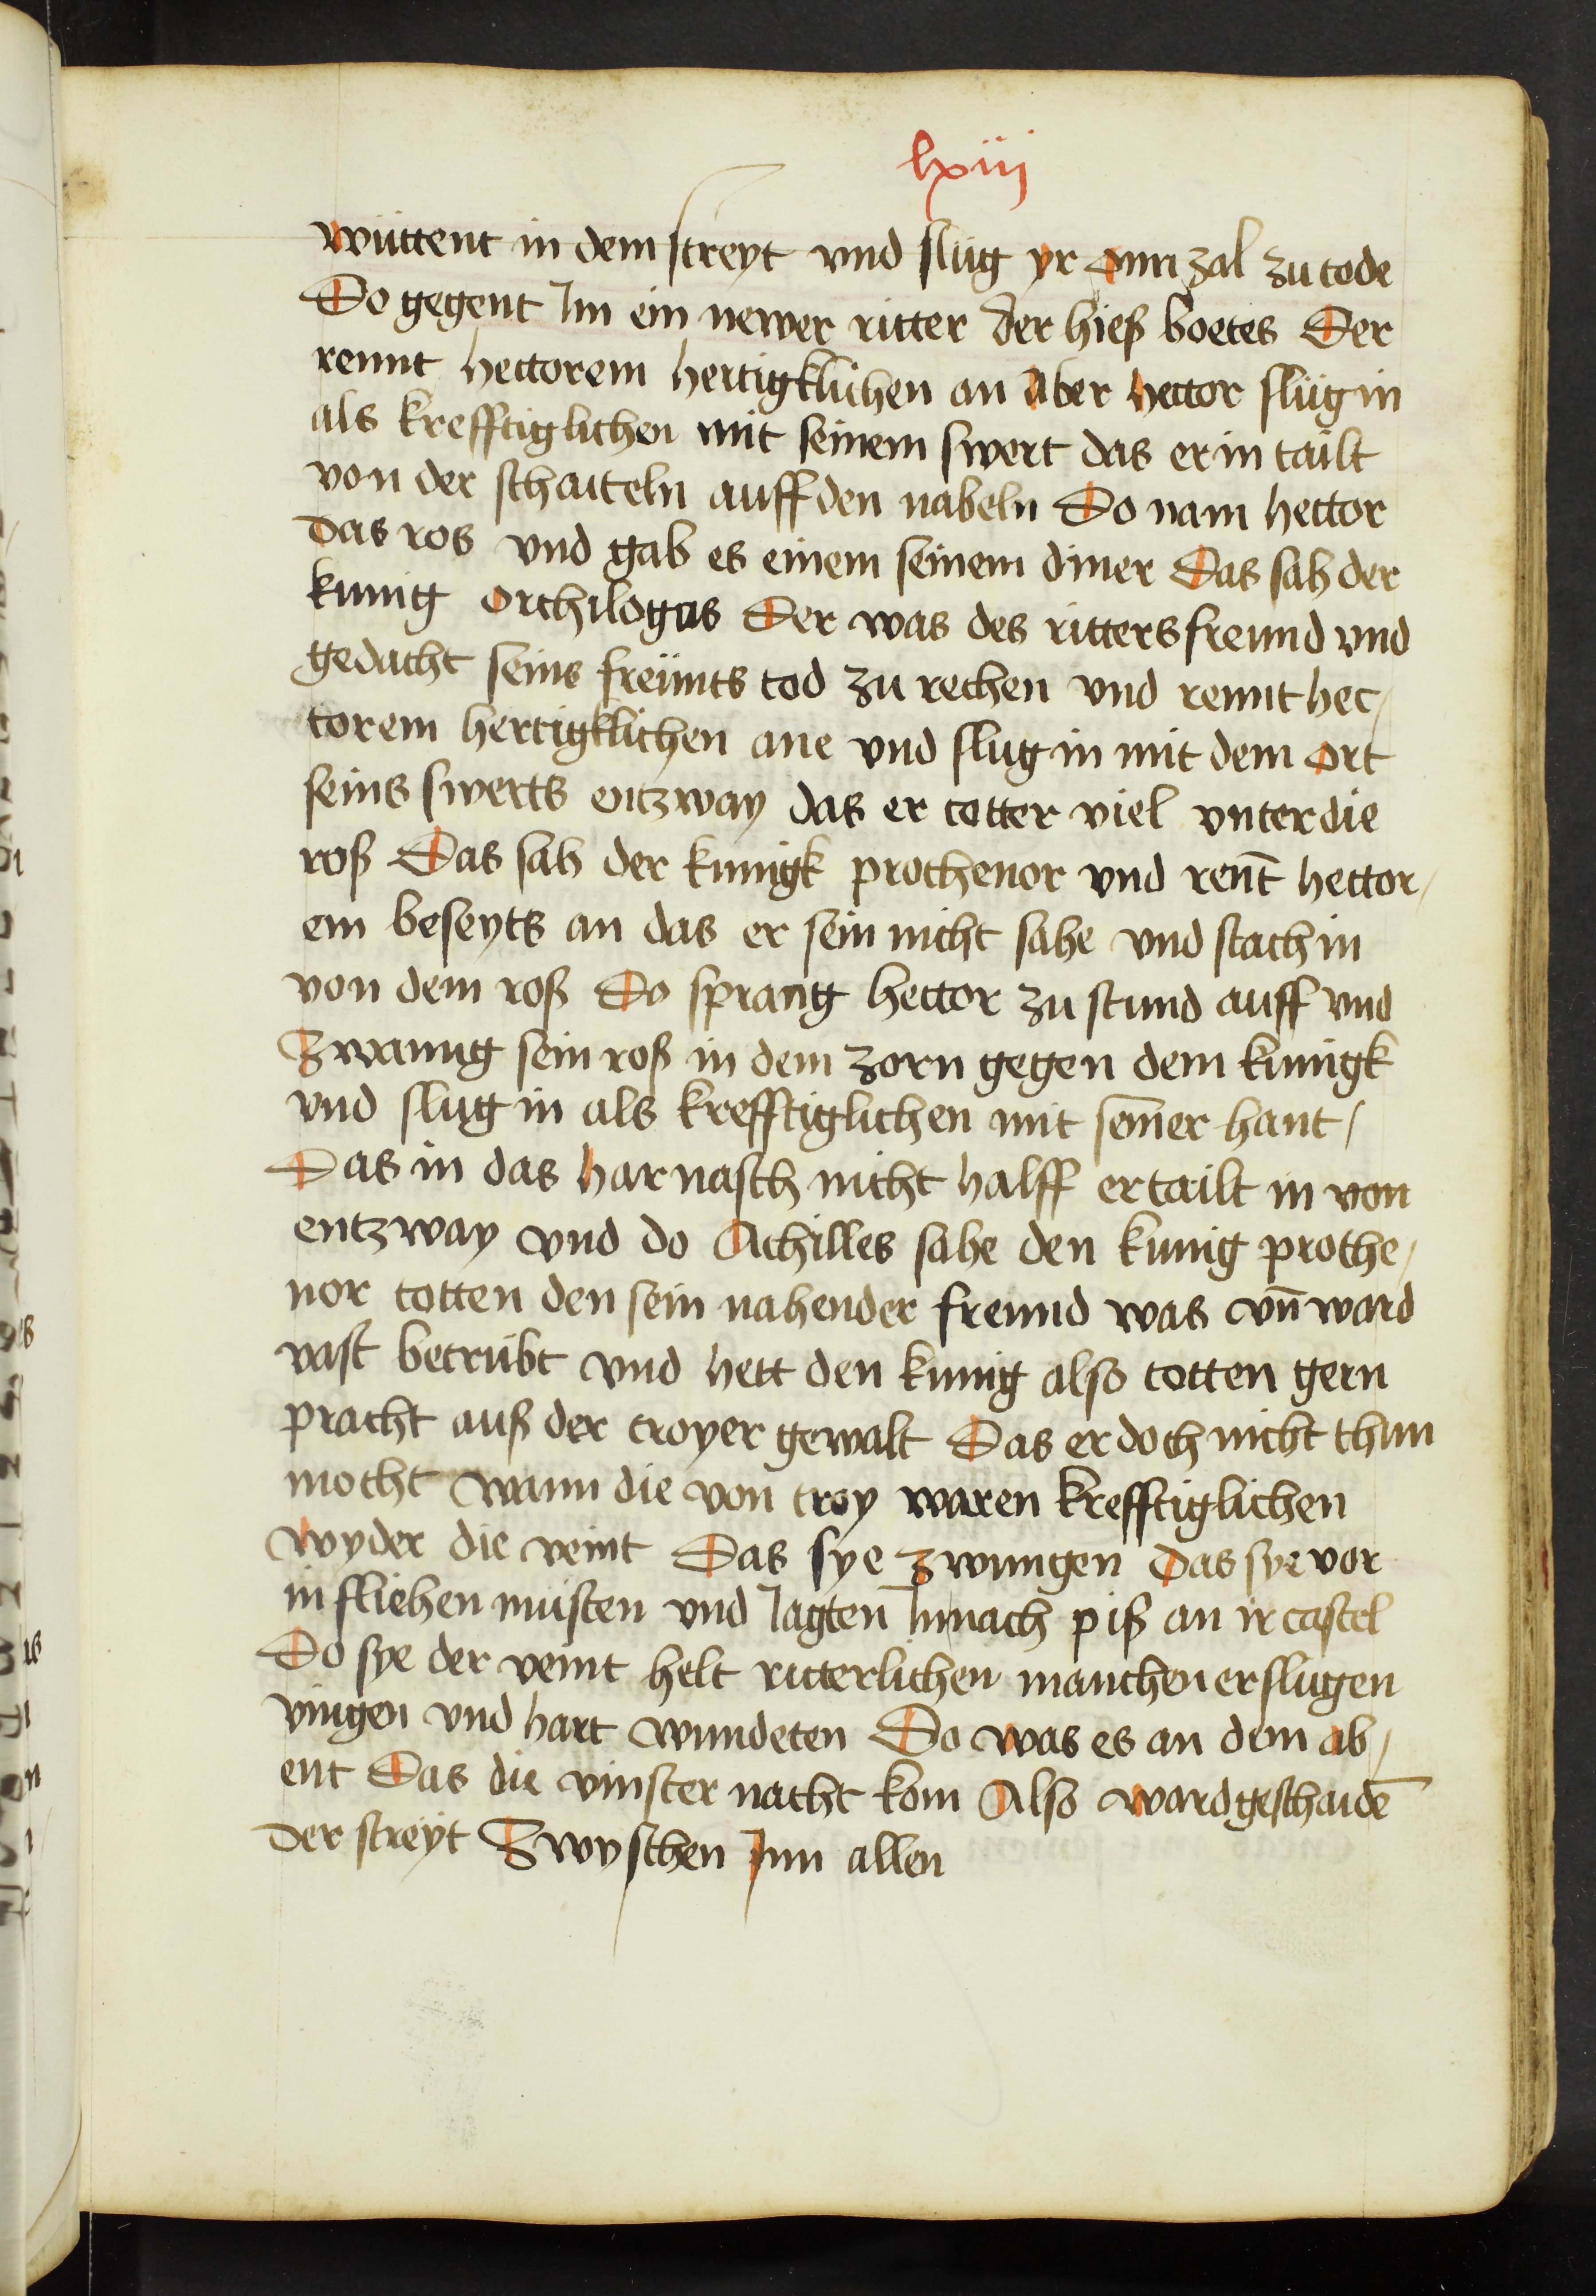 lxiij
wüttent in dem streyt vnd slüg yr onn zal zu tode
Do gegent Im ein newer ritter der hieß boetes Der
rennt hectorem hertigklichen an Aber hector slüg in
als krefftiglichen mit seinem swert das er in tailt
von der schaiteln auff den nabeln Do nam hector
das ros vnd gab es einem seinem diner Das sah der
kunig Orchilogus Der was des ritters freund vnd
gedacht seins freünts tod zu rechen vnd rennt hec/
torem hertigklichen ane vnd slug in mit dem ort
seins swerts entzway das er totter viel vnter die
roß Das sah der kunigk prothenor vnd rent̄ hector/
em beseyts an das er sein nicht sahe vnd stach in
von dem roß Do sprang hector zu stund auff vnd
Zwanng sein roß in dem zorn gegen dem kunigk
vnd slug in als krefftiglichen mit sein̄er hant /
Das in das harnasch nicht halff er tailt in von
entzway vnd do Achilles sahe den kunig prothe/
nor totten den sein nahender freund was vn̄ ward
vast betrübt vnd hett den kunig also totten gern
pracht auß der troyer gewalt Das er doch nicht thun
mocht wann die von troy waren krefftiglichen
wyder die veint Das sye zwungen Das sye vor
in fliehen müsten vnd Jagten In nach piß an ir castel
Do sye der veint helt ritterlichen manchen erslugen
vingen vnd hart wundeten Do was es an dem ab/
ent Das die vinster nacht kom Also ward geschaidē
der streyt Zwyschen Inn allen